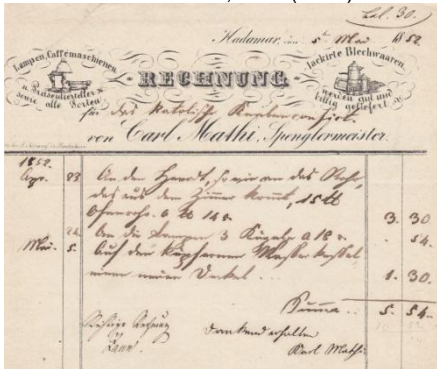 Lit. 30.
Hadamar, den 5t Mai 1852.
Lampen, Caffémaschienen,
u. Präsentirteller,
sowie alle Sorten
lackirte Blechwaaren
werden gut und
billig geliefert
RECHNUNG
für das katolische Knabenconvict
von Carl Mathi, Spenglermeister.
1852.
Apr. 23 An den Heerdt, sowie an das Rohr
das aus dem Zimmer komt, 15 lb
Ofenrohr a lb 14 x. 3. 30
24. An die Lampen 3 a 18 x. . 54.
Mai. 5. Auf den Kupfernen Wasser Kessel
einen neuen Dekel ... 1. 30.
Suma .. 5. 54.
Dankend erhalten
Karl Mathi